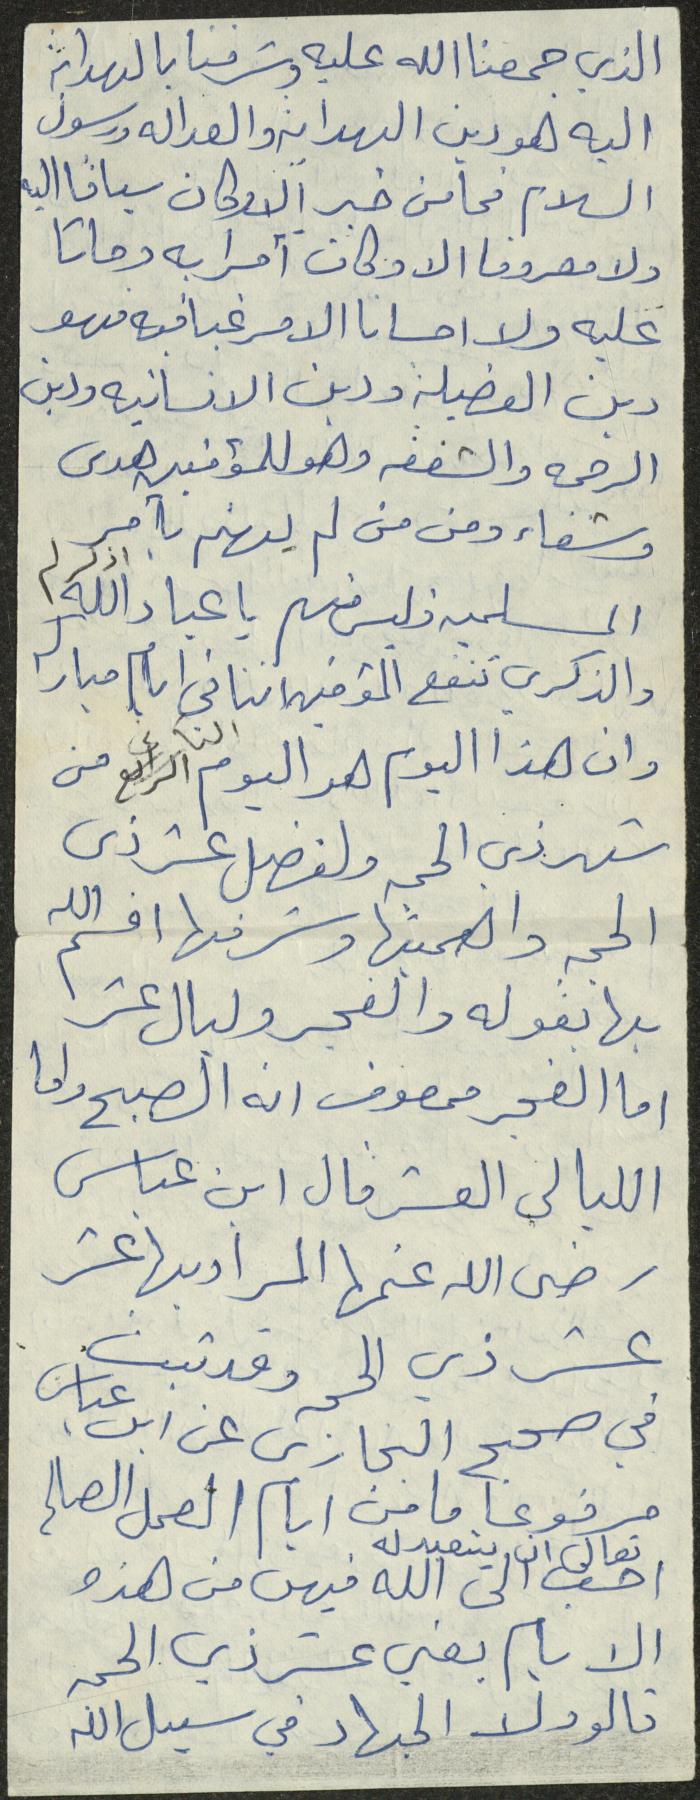 الذي جمعنا الله عليه وشرفنا بالهداية
اليه هو دين الهداية والعداله ورسول
السلام فما من خير الا وكان سباقا اليه
ولا معروفا الا وكان آمرا به وحاثا
عليه ولا احسانا الا مرغبا فيه فهو
دين الفضيلة ودين الانسانيه ودين
الرحمه والشفقه وهو للمؤمنين هدى
وشفاء ومن من لم يهتم بأمر
المسلمين فليس منهم يا عباد الله اذكركم
والذكرى تنفع المؤمنين اننا في ايام مباركه
وان هذا اليوم هو اليوم الرابع الثاني من
شهر ذي الحجه ولفضل عشر ذى
الحجه واهميتها وشرفها اقسم الله
بها بقوله والفجر وليال عشر
اما الفجر فمعروف انه الصبح واما
الليالي العشر قال ابن عباس
رضى الله عنهما المراد بها عشر
عشر ذي الحجه وقد ثبت
في صحيح البخارى عن ابن عباس
مرفوعا ما من ايام العمل الصالح
تعالى ان يتعبد له
احب الى الله فيهن من هذه
الايام يعني عشر ذي الحجه
قالو ولا الجهاد في سبيل الله